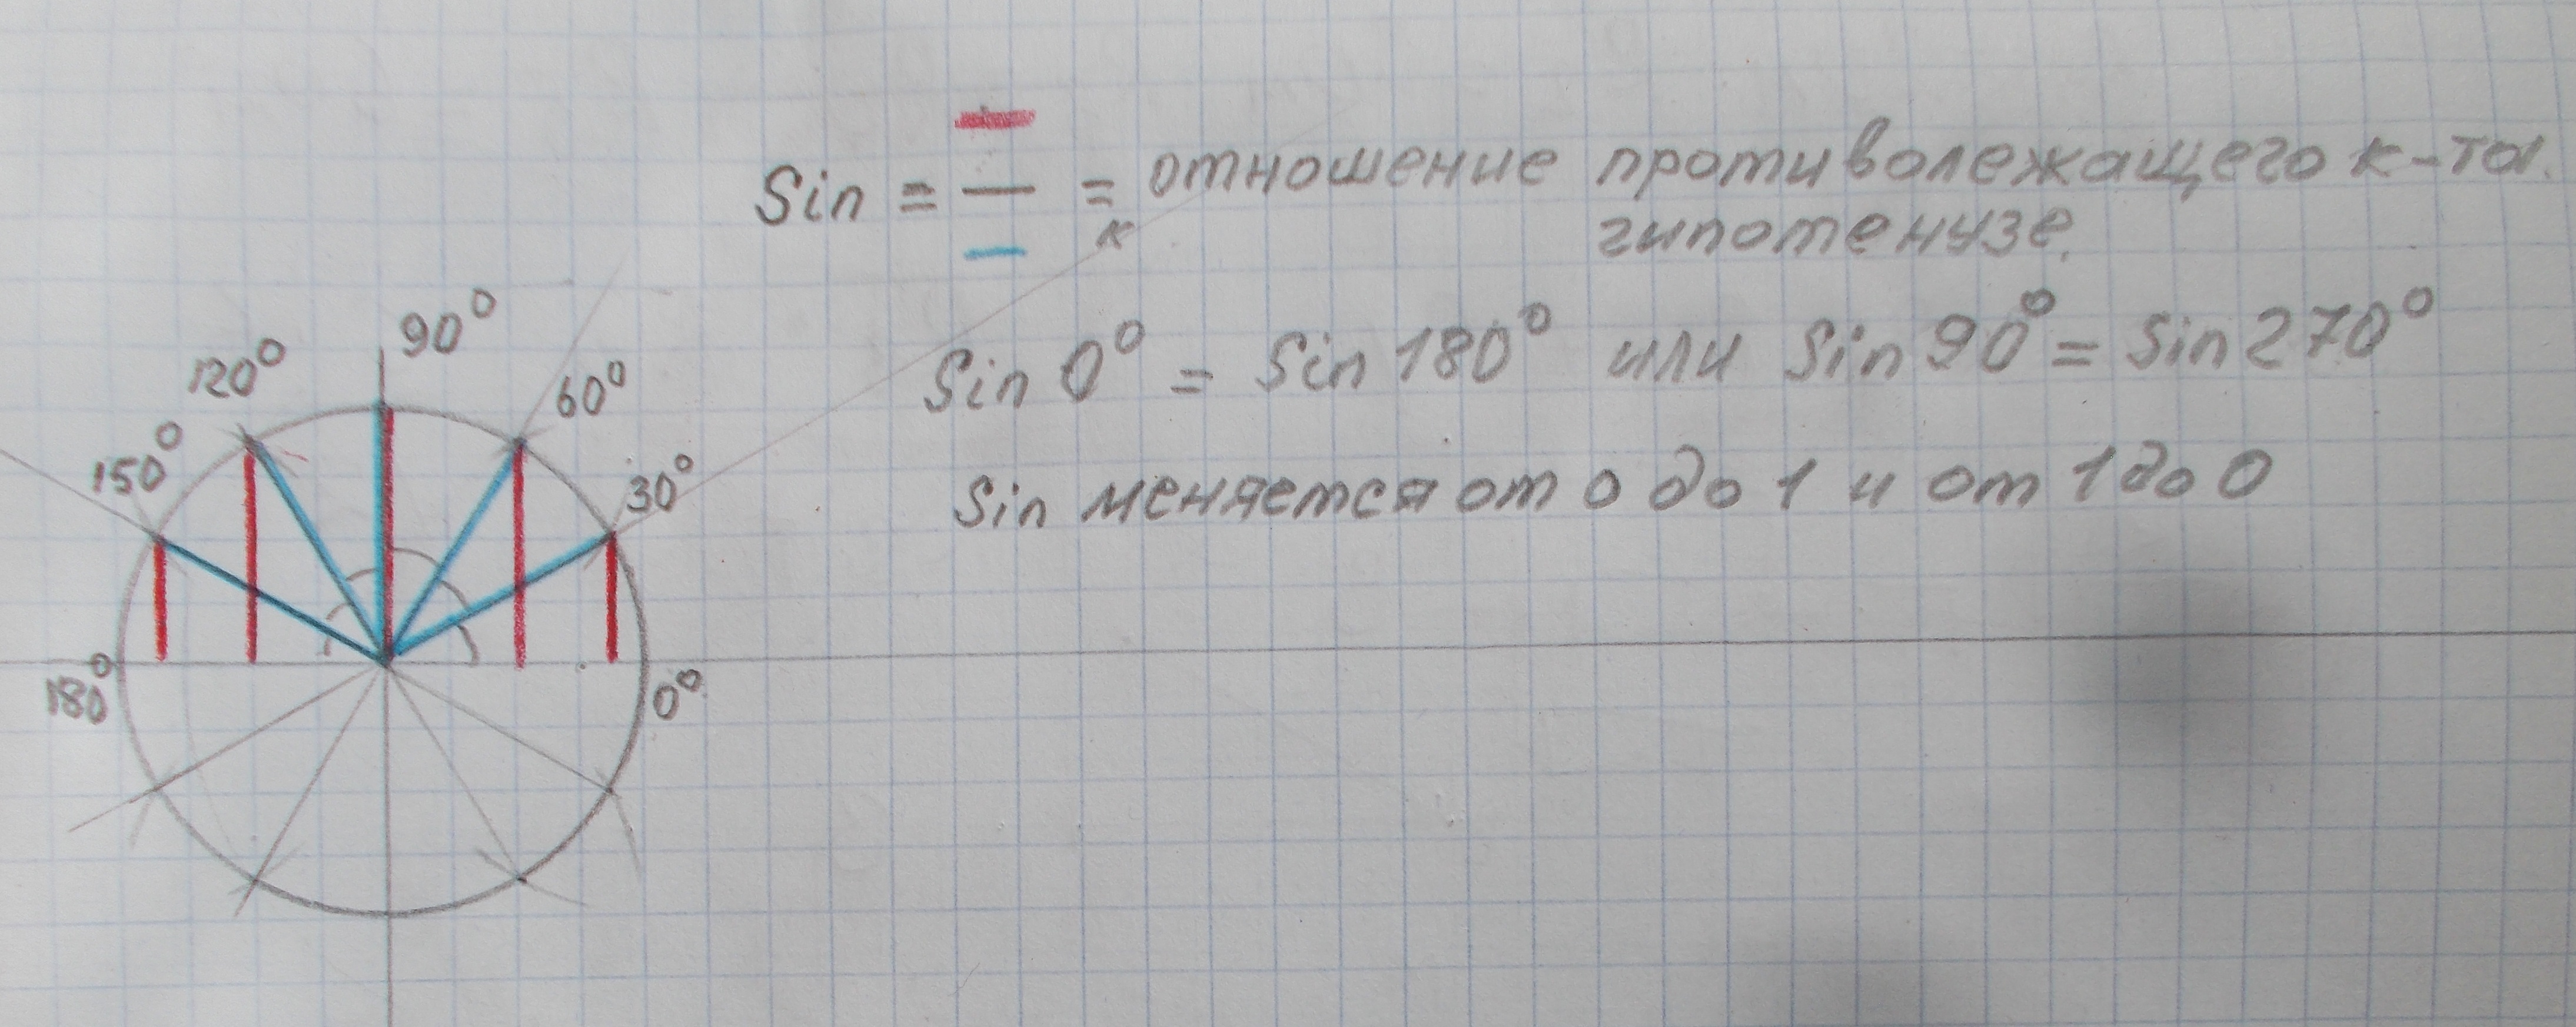 Sin = — = отношение противолежащего к-та.
к гипотенузе.
Sin 0° = Sin 180° или Sin 90° = Sin 270°
Sin меняется от 0 до 1 и от 1 до 0
90°
120°
60°
150°
30°
180°
0°